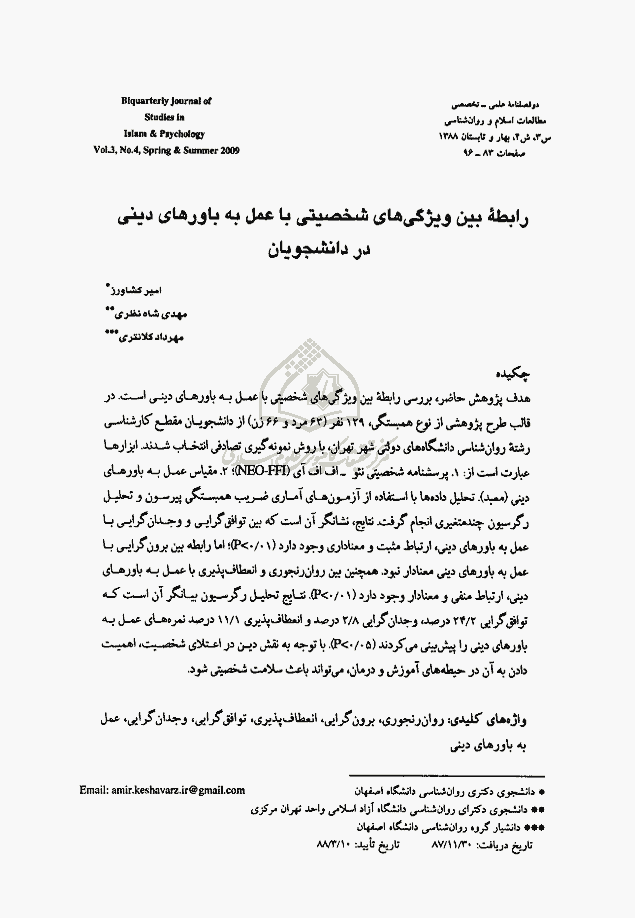 Biquarterly Journal of
Studies in
Islam & Psychology
Vol.3, No.4, Spring & Summer 2009
دوفصلنامهٔ علمی ـ تخصصی
مطالعات اسلام و روان‌شناسی
س۳، ش۴، بهار و تابستان ۱۳۸۸
صفحات ۸۳ ـ ۹۶
رابطهٔ بین ویژگی‌های شخصیتی با عمل به باورهای دینی
در دانشجویان
امیر کشاورز*
مهدی شاه نظری**
مهرداد کلانتری***
چکیده
هدف پژوهش حاضر، بررسی رابطهٔ بین ویژگی‌های شخصیتی با عمل به باورهای دینی است. در
قالب طرح پژوهشی از نوع همبستگی، ۱۲۹ نفر (۶۳ مرد و ۶۶ زن) از دانشجویان مقطع کارشناسی
رشتهٔ روان‌شناسی دانشگاه‌های دولتی شهر تهران، با روش نمونه‌گیری تصادفی انتخاب شدند. ابزارها
عبارت است از: ۱. پرسشنامه شخصیتی نئو ـ اف اف آی (NEO-FFI)؛ ۲. مقیاس عمل به باورهای
دینی (معبد). تحلیل داده‌ها با استفاده از آزمون‌های آماری ضریب همبستگی پیرسون و تحلیل
رگرسیون چندمتغیری انجام گرفت. نتایج، نشانگر آن است که بین توافق‌گرایی و وجدان‌گرایی با
عمل به باورهای دینی، ارتباط مثبت و معناداری وجود دارد (P<۰/۰۱)؛ اما رابطه بین برون‌گرایی با
عمل به باورهای دینی معنادار نبود. همچنین بین روان‌رنجوری و انعطاف‌پذیری با عمل به باورهای
دینی، ارتباط منفی و معنادار وجود دارد (P<۰/۰۱). نتایج تحلیل رگرسیون بیانگر آن است که
توافق‌گرایی ۲۴/۲ درصد، وجدان‌گرایی ۲/۸ درصد و انعطاف‌پذیری ۱۱/۱ درصد نمره‌های عمل به
باورهای دینی را پیش‌بینی می‌کردند (P<۰/۰۵). با توجه به نقش دین در اعتلای شخصیت، اهمیت
دادن به آن در حیطه‌های آموزش و درمان، می‌تواند باعث سلامت شخصیتی شود.
واژه‌های کلیدی: روان‌رنجوری، برون‌گرایی، انعطاف‌پذیری، توافق‌گرایی، وجدان‌گرایی، عمل
به باورهای دینی
* دانشجوی دکتری روان‌شناسی دانشگاه اصفهان Email: amir.keshavarz.ir@gmail.com
** دانشجوی دکترای روان‌شناسی دانشگاه آزاد اسلامی واحد تهران مرکزی
*** دانشیار گروه روان‌شناسی دانشگاه اصفهان
تاریخ دریافت: ۸۷/۱۱/۳۰ تاریخ تأیید: ۸۸/۳/۱۰